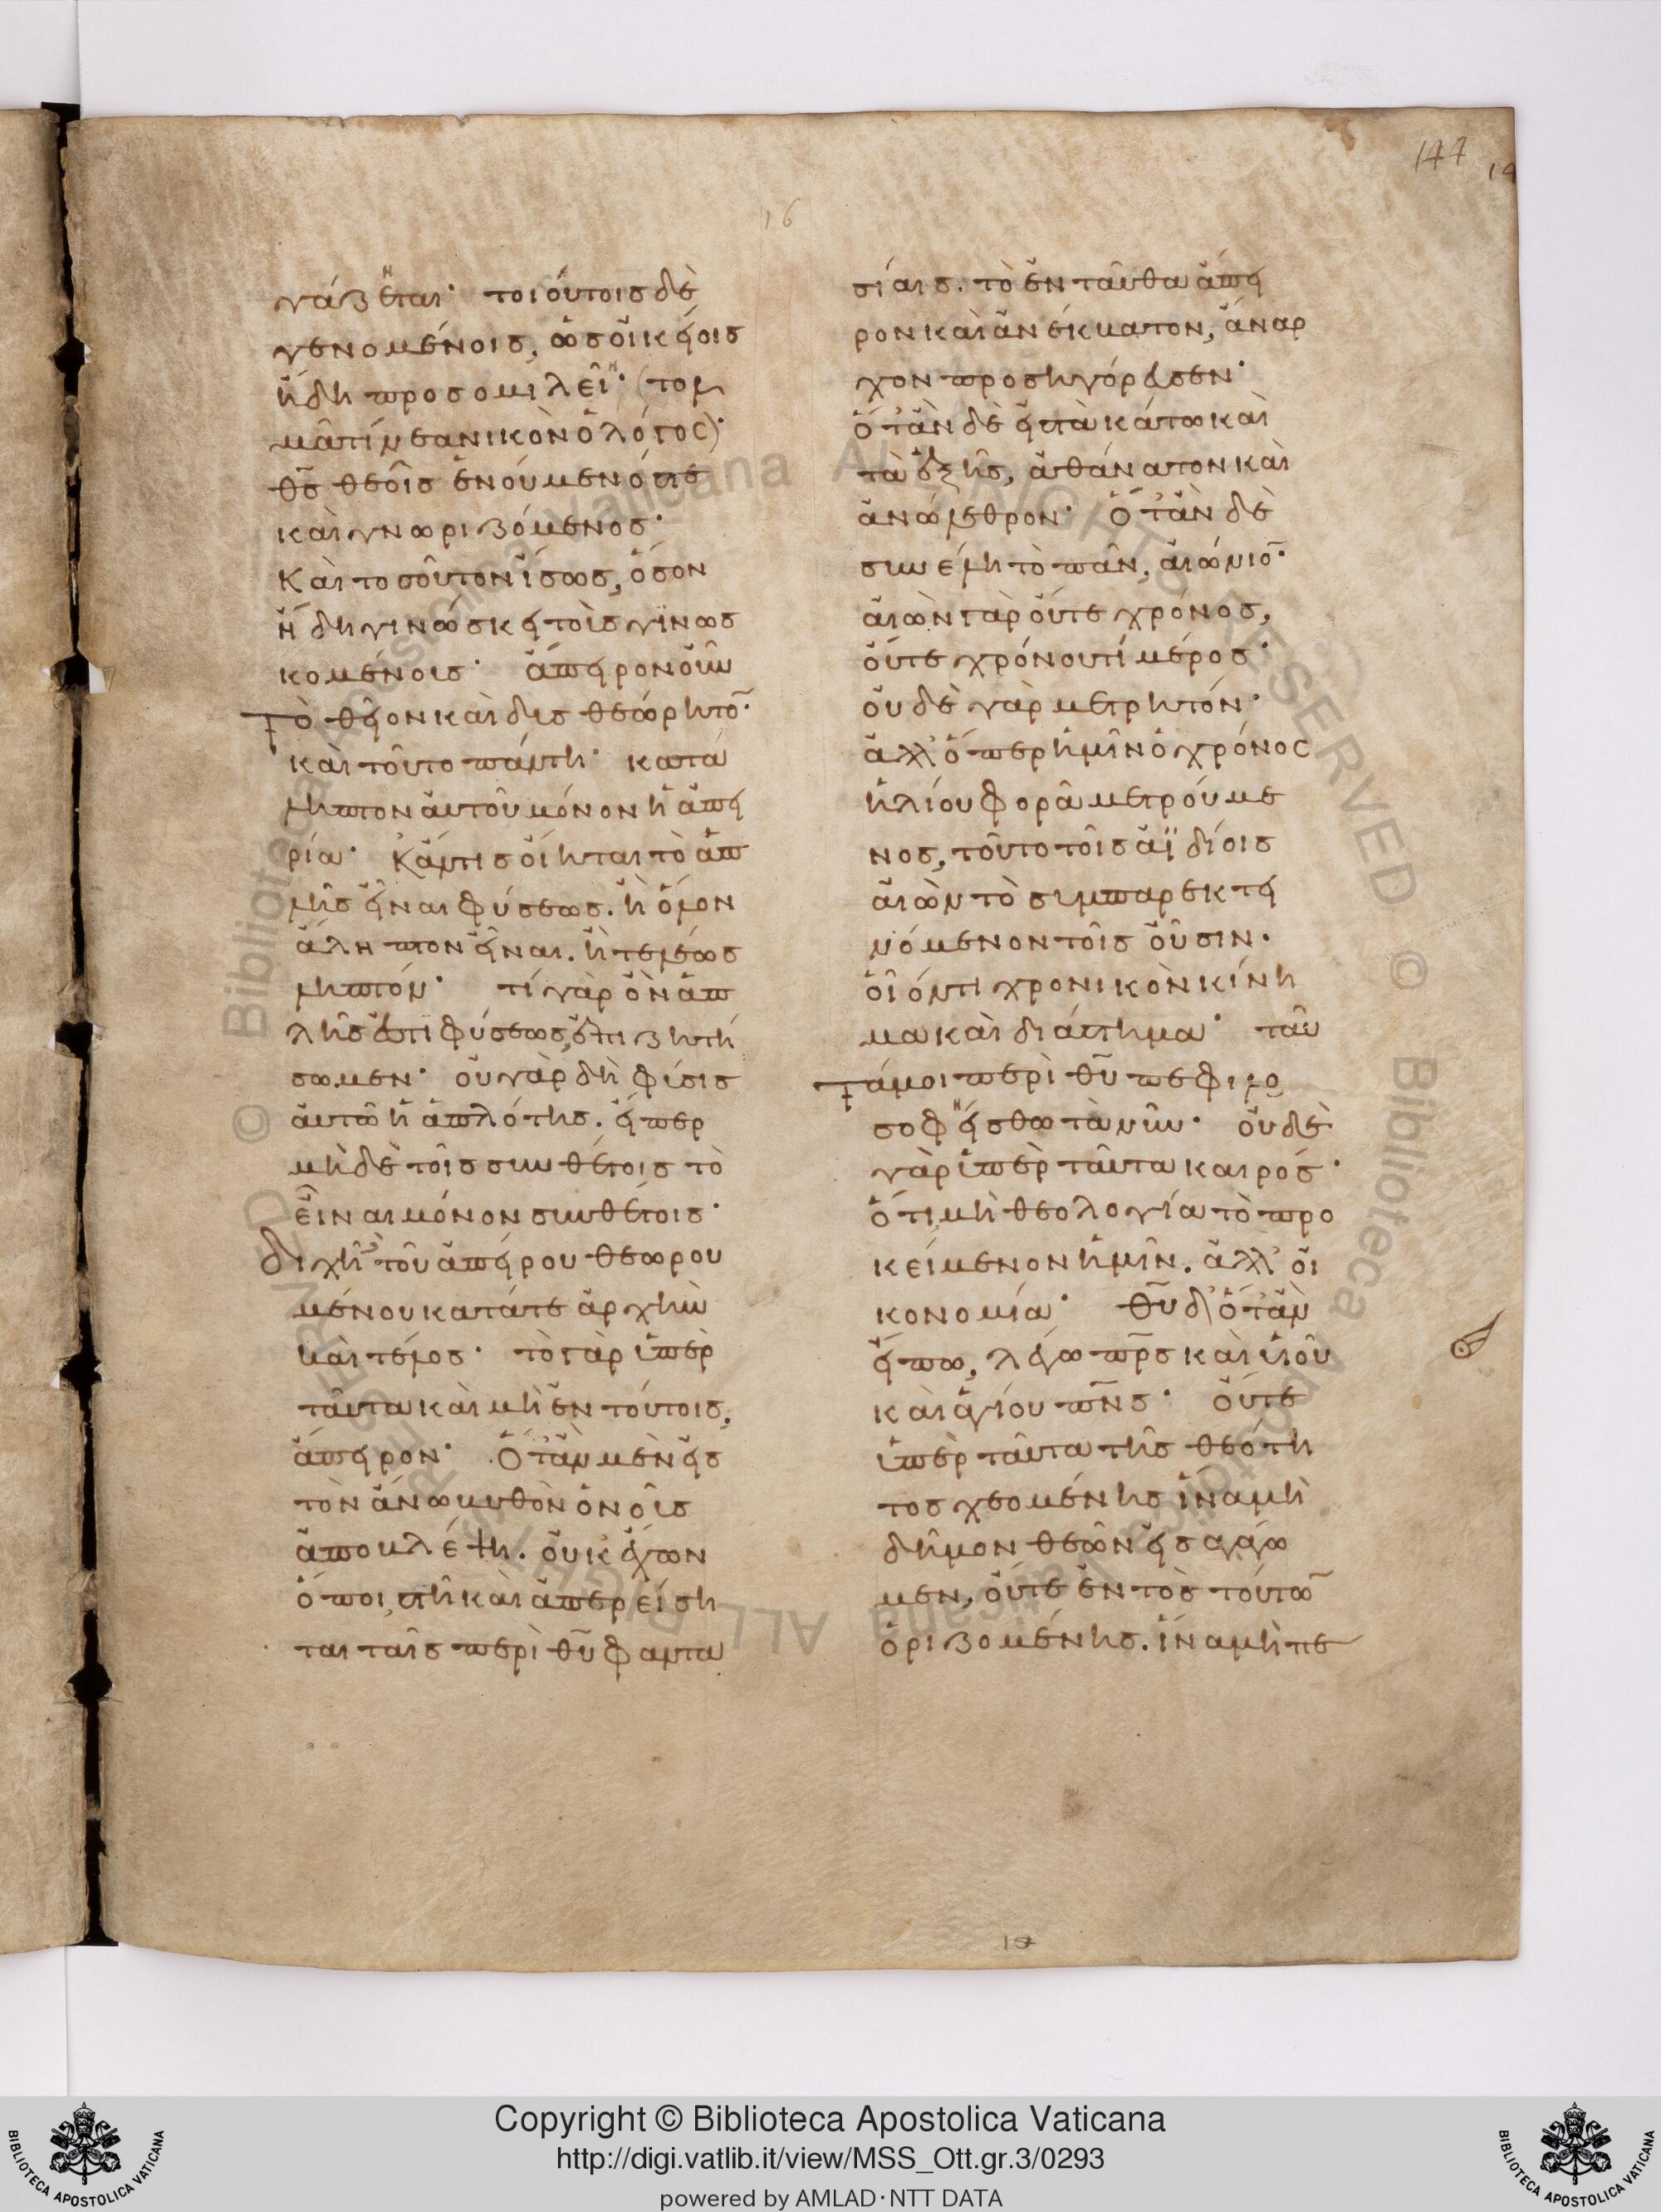 147
16
γάζεται· τοιούτοις δὲ
γενομένοις, ὡς οἰκείοις
ἤδη προσομιλεῖ· (τολ
μᾶ τί νεανικὸν ὁ λόγος)·
θς θεοῖς ἑνούμενός τε
καὶ γνωριζόμενος·
Καὶ τοσοῦτον ἴσως, ὅσον
ἤδη γινώσκει τοὺς γινωσ
κομένοις· ἄπειρον οὖν
τὸ θεῖον καὶ δυσθεώρητο̅·
καὶ τοῦτο πάντη· κατα
ληπτὸν αὐτοῦ μόνον ἡ ἀπει
ρία· Κἄν τις οἴηται τὸ ἁπ
λῆς εἶναι φύσεως. ἢ ὅλον
ἄληπτον εἶναι. ἢ τελέως
ληπτόν· τί γὰρ ὂν ἁπ
λῆς ἐστὶ φύσεως, ἐπιζητή
σωμεν· οὐ γὰρ δὴ φύσις
αὐτῶ ἡ ἁπλότης. εἴπερ
μὴ δὲ τοῖς συνθέτοις τὸ
εἶναι μόνον συνθέτοις·
διχῆ δὲ τοῦ ἀπείρου θεωρου
μένου κατά τε ἀρχὴν
καὶ τέλος· τὸ γὰρ ὑπὲρ
ταῦτα καὶ μὴ ἐν τούτοις,
ἄπειρον· Ὅταν μὲν εἰς
τὸν ἄνω βυθὸν ὁ νοῦς
ἀποβλέψη. οὐκ ἔχων
ὅποι στῆ καὶ ἀπερείση
ται ταῖς περὶ θῦ φαντα
σίαις. τὸ ἐνταῦθα ἄπει
ρον καὶ ἀνέκβατον, ἄναρ
χον προσηγόρευσεν·
ὅταν δὲ εἰς τὰ κάτω καὶ
τὰ ἑξῆς, ἀθάνατον καὶ
ἀνώλεθρον· Ὅταν δὲ
συνέλη τὸ πᾶν, αἰώνιο̅·
αἰὼν γὰρ οὔτε χρόνος,
οὔτε χρόνου τί μέρος·
οὐδὲ γὰρ μετρητόν·
ἀλλ' ὅπερ ἡμῖν ὁ χρόνος
ἡλίου φορᾶ μετρούμε
νος, τοῦτο τοῖς ἀϊδίοις
αἰὼν τὸ συμπαρεκτει
νόμενον τοῖς οὖσιν.
οἷόν τι χρονικὸν κίνη
μα καὶ διάστημα· ταῦ
τά μοι περὶ θῦ πεφιλο
σοφείσθω τανῦν· οὐδὲ
γὰρ ὑπὲρ ταῦτα καιρός·
ὅτι μὴ θεολογία τὸ προ
κείμενον ἡμῖν. ἀλλ' οἰ
κονομία· Θῦ δ' ὅταν
εἴπω, λέγω πρς καὶ υἱοῦ
καὶ ἁγίου πνς· οὔτε
ὑπὲρ ταῦτα τῆς θεότη
τος χεομένης ἵνα μὴ
δῆμον θεῶν εἰσαγάγω
μεν, οὔτε ἐντὸς τούτω̅
ὁριζομένης. ἵνα μὴ πε
Copyright © Biblioteca Apostolica Vaticana
http://digi.vatlib.it/view/MSS_Ott.gr.3/0293
powered by AMLAD·NTT DATA